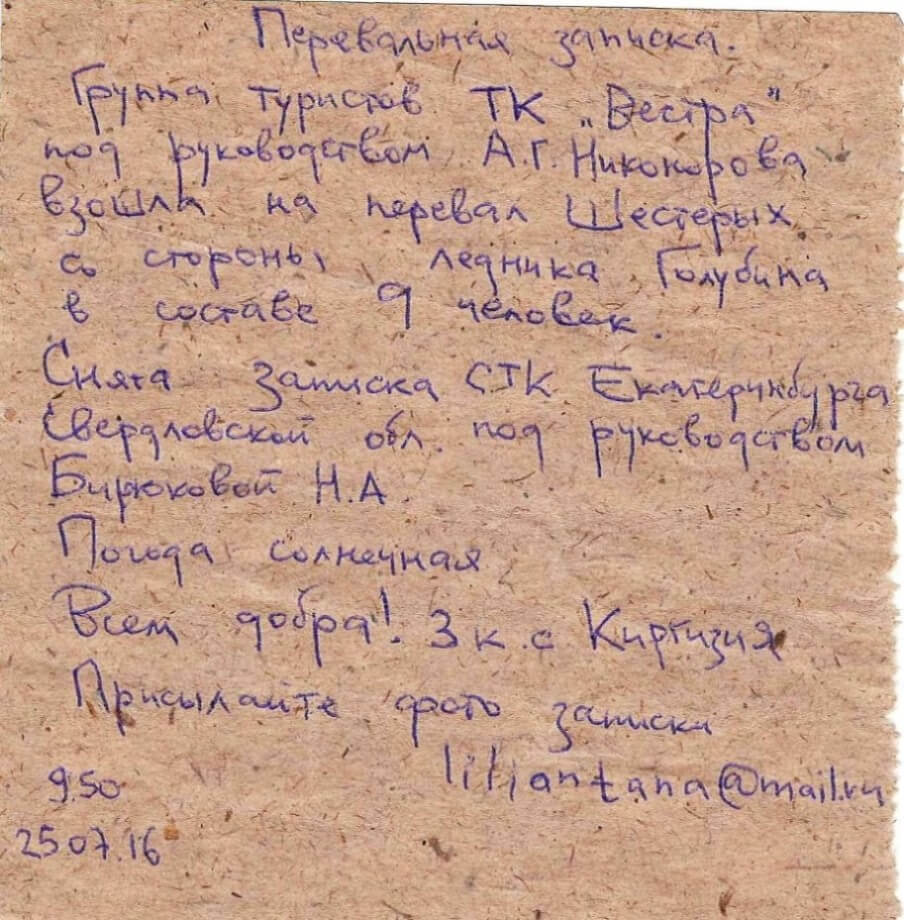 Перевальная записка.
Группа туристов ТК „Вестра"
под руководством А.Г. Никонорова
взошла на перевал Шестерых
со стороны ледника Голубина
в составе 9 человек.
Снята записка СТК Екатеринбурга
Свердловской обл. под руководством
Бирюковой Н.А.
Погода солнечная
Всем добра! 3 к.с Киргизия
Присылайте фото записки
liliantana@mail.ru
9.50
25 07.16